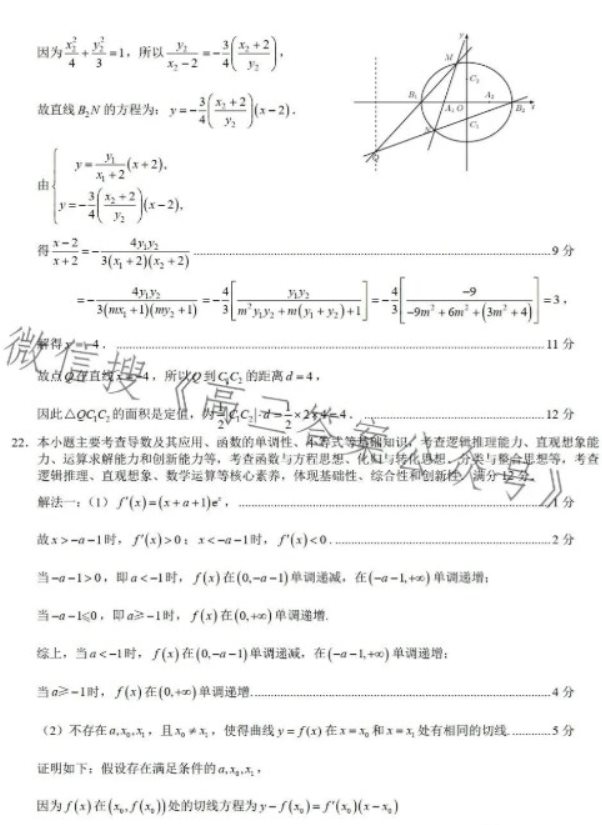 因为 x₂²/4 + y₂²/3 = 1，所以 y₂/(x₂−2) = −3/4((x₂+2)/y₂)，
故直线 B₂N 的方程为：y = −3/4((x₂+2)/y₂)(x−2).
由 { y = y₁/(x₁+2)(x+2),
y = −3/4((x₂+2)/y₂)(x−2),
得 (x−2)/(x+2) = −4y₁y₂/(3(x₁+2)(x₂+2)) ……9 分
= −4y₁y₂/(3(my₁+1)(my₂+1)) = −4/3[y₁y₂/(m²y₁y₂+m(y₁+y₂)+1)] = −4/3[−9/(−9m²+6m²+(3m²+4))] = 3，
解得 x = −4. ……11 分
故点 Q 在直线 x = −4，所以 Q 到 C₁C₂ 的距离 d = 4，
因此△QC₁C₂ 的面积是定值，为 1/2|C₁C₂|·d = 1/2×2×4 = 4. ……12 分
22. 本小题主要考查导数及其应用、函数的单调性、不等式等基础知识，考查逻辑推理能力、直观想象能
力、运算求解能力和创新能力等，考查函数与方程思想、化归与转化思想、分类与整合思想等，考查
逻辑推理、直观想象、数学运算等核心素养，体现基础性、综合性和创新性．满分 12 分．
解法一：（1）f′(x) = (x+a+1)eˣ， ……1 分
故 x > −a−1 时，f′(x) > 0；x < −a−1 时，f′(x) < 0. ……2 分
当 −a−1 > 0，即 a < −1 时，f(x) 在 (0,−a−1) 单调递减，在 (−a−1,+∞) 单调递增；
当 −a−1 ⩽ 0，即 a ⩾ −1 时，f(x) 在 (0,+∞) 单调递增.
综上，当 a < −1 时，f(x) 在 (0,−a−1) 单调递减，在 (−a−1,+∞) 单调递增；
当 a ⩾ −1 时，f(x) 在 (0,+∞) 单调递增. ……4 分
（2）不存在 a,x₀,x₁，且 x₀ ≠ x₁，使得曲线 y = f(x) 在 x = x₀ 和 x = x₁ 处有相同的切线. ……5 分
证明如下：假设存在满足条件的 a,x₀,x₁，
因为 f(x) 在 (x₀,f(x₀)) 处的切线方程为 y − f(x₀) = f′(x₀)(x−x₀)
y
M
C₂
B₁
A₁
O
A₂
B₂
x
N
C₁
Q
微信搜《高三答案公众号》